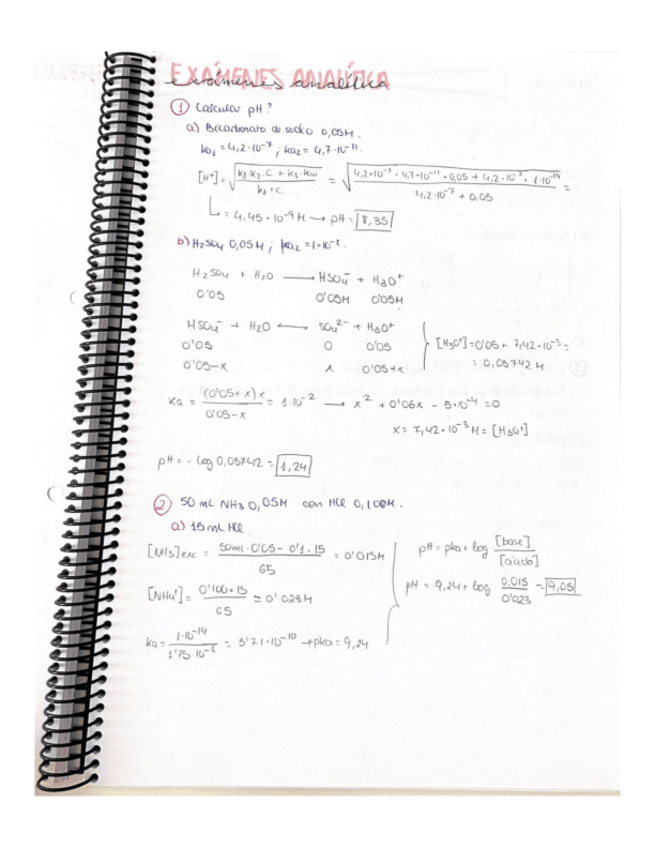 EXÁMENES ANALÍTICA
exámenes analítica
① Calcular pH?
a) Bicarbonato de sodio 0,05M.
ka₁ = 4,2·10⁻⁷ ; ka₂ = 4,7·10⁻¹¹.
[H⁺] = √((k₁·k₂·C + k₁·kw)/(k₁+C)) = √((4,2·10⁻⁷ · 4,7·10⁻¹¹ · 0,05 + 4,2·10⁻⁷ · 1·10⁻¹⁴)/(4,2·10⁻⁷ + 0,05)) =
= 4,45·10⁻⁹ M → pH = 8,35
b) H₂SO₄ 0,05M ; ka₂ = 1·10⁻².
H₂SO₄ + H₂O → HSO₄⁻ + H₃O⁺
0'05 0'05M 0'05M
HSO₄⁻ + H₂O ↔ SO₄²⁻ + H₃O⁺
0'05 0 0'05
0'05-x x 0'05+x
[H₃O⁺] = 0'05 + 7,42·10⁻³ =
= 0,05742 M
Ka = (0'05+x)x/(0'05-x) = 1·10⁻² → x² + 0'06x - 5·10⁻⁴ = 0
x = 7,42·10⁻³ M = [H₃O⁺]
pH = - log 0,05742 = 1,24
② 50 mL NH₃ 0,05M con HCl 0,100M.
a) 15 mL HCl.
[NH₃]exc = (50ml·0'05 - 0'1·15)/65 = 0'015M
[NH₄⁺] = (0'100·15)/65 = 0'023M
Ka = 1·10⁻¹⁴/1'75·10⁻⁵ = 5'71·10⁻¹⁰ → pka = 9,24
pH = pka + log [base]/[ácido]
pH = 9,24 + log 0,015/0'023 = 9,05